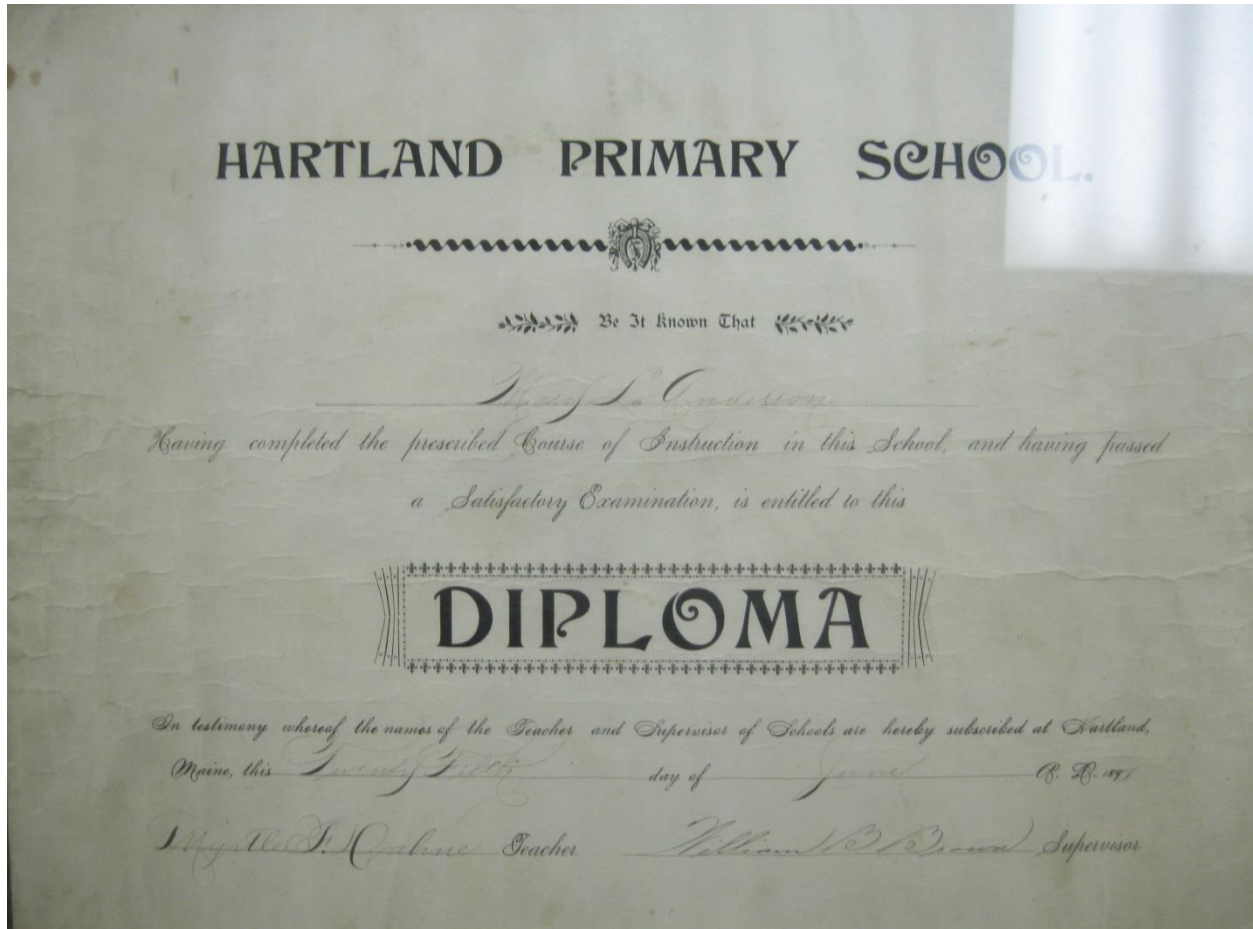 HARTLAND PRIMARY SCHOOL.
Be It Known That
Mary L. Anderson
Having completed the prescribed Course of Instruction in this School, and having passed
a Satisfactory Examination, is entitled to this
DIPLOMA
In testimony whereof the names of the Teacher and Supervisor of Schools are hereby subscribed at Hartland,
Maine, this Twenty Fifth day of June A. D.
Myrtle F. Teacher William B Brown Supervisor.